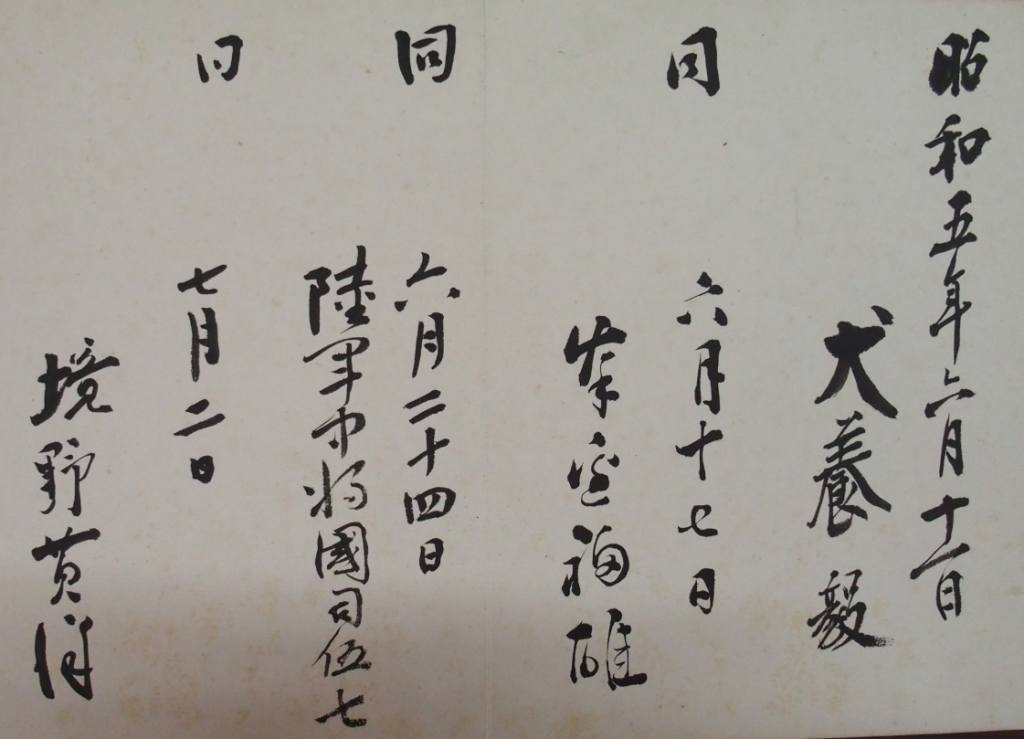 昭和五年六月十一日
犬養毅
同 六月十七日
岸邊福雄
同 六月二十四日
陸軍中将國司伍七
同 七月二日
境野黄洋